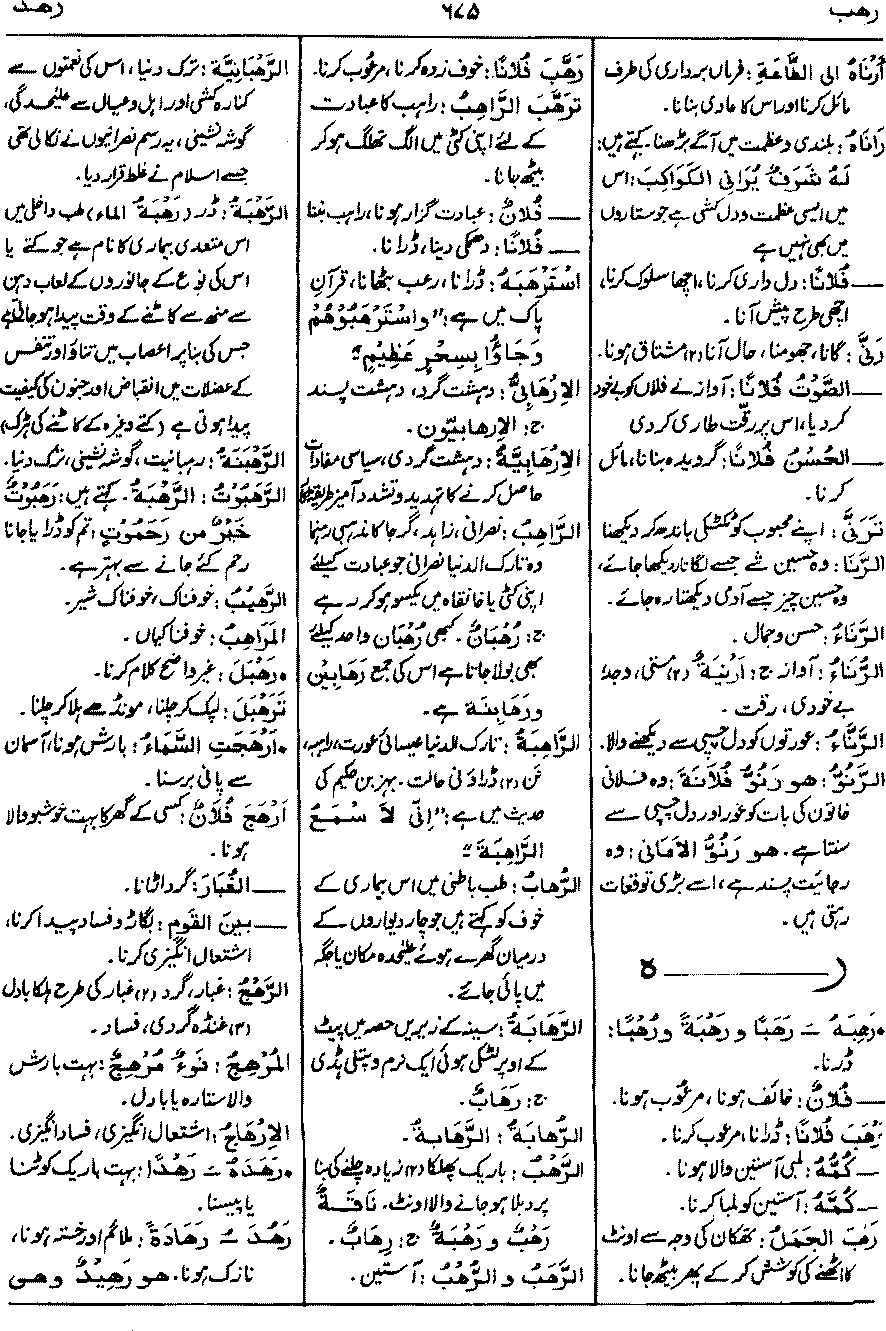 رهب
٦٤٥
رهد
أَرْنَاهُ الى الطَّاعَةِ: فرماں برداری کی طرف
مائل کرنا اور اس کا عادی بنانا۔
رَانَاهُ: بلندی و عظمت میں آگے بڑھنا۔ کہتے ہیں:
لَهٗ شَرَفٌ يُرَانِي الكَوَاكِبَ: اس
میں ایسی عظمت و دل کشی ہے جو ستاروں
میں بھی نہیں ہے
— فُلَانًا: دل داری کرنا، اچھا سلوک کرنا،
اچھی طرح پیش آنا۔
رَنّٰی: گانا، جھومنا، حال آنا (۲) مشتاق ہونا۔
— الصَّوْتُ فُلَانًا: آواز نے فلاں کو بے خود
کر دیا، اس پر رقّت طاری کر دی
— الحُسْنُ فُلَانًا: گرویدہ بنانا، مائل
کرنا۔
تَرَنّٰی: اپنے محبوب کو ٹکٹکی باندھ کر دیکھنا
الرَّنَا: وہ حسین شے جسے لگاتار دیکھا جائے،
وہ حسین چیز جسے آدمی دیکھتا رہ جائے۔
الرَّنَاءُ: حسن و جمال۔
الرُّنَاءُ: آواز ج: أَرْنِيَةٌ (۲) مستی، وجد،
بے خودی، رقت۔
الرَّنَّاءُ: عورتوں کو دل چسپی سے دیکھنے والا۔
الرَّنُوُّ: هو رَنُوُّ فُلَانَةَ: وہ فلانی
خاتون کی بات کو غور اور دل چسپی سے
سنتا ہے۔ هو رَنُوُّ الأمَانی: وہ
رجائیت پسند ہے، اسے بڑی توقعات
رہتی ہیں۔
ر ——— ه
• رَهِبَهٗ ـَ رَهَبًا و رَهْبَةً و رُهْبًا:
ڈرنا۔
— فُلَانٌ: خائف ہونا، مرعوب ہونا۔
رَهَبَ فُلَانًا: ڈرانا، مرعوب کرنا۔
— كُمُّهٗ: لمبی آستین والا ہونا۔
— كُمَّهٗ: آستین کو لمبا کرنا۔
رَهَّبَ الجَمَلُ: تھکان کی وجہ سے اونٹ
کا اٹھنے کی کوشش کر کے پھر بیٹھ جانا۔
رَهَّبَ فُلَانًا: خوف زدہ کرنا، مرعوب کرنا۔
تَرَهَّبَ الرَّاهِبُ: راہب کا عبادت
کے لئے اپنی کٹی میں الگ تھلگ ہو کر
بیٹھ جانا۔
— فُلَانٌ: عبادت گزار ہونا، راہب بننا
— فُلَانًا: دھمکی دینا، ڈرانا۔
اسْتَرْهَبَهٗ: ڈرانا، رعب بٹھانا، قرآنِ
پاک میں ہے: "وَاسْتَرْهَبُوْهُمْ
وَجَاؤُا بِسِحْرٍ عَظِيْمٍ"
الإرْهَابِيُّ: دہشت گرد، دہشت پسند
ج: الإرهابيّون۔
الإرْهَابِيَّةُ: دہشت گردی، سیاسی مفادات
حاصل کرنے کا تہدید و تشدد آمیز طریقہ کار
الرَّاهِبُ: نصرانی، زاہد، گرجا کا مذہبی رہنما
وہ تارک الدنیا نصرانی جو عبادت کیلئے
اپنی کٹی یا خانقاہ میں یکسو ہو کر رہے
ج: رُهْبَانٌ۔ کبھی رُهْبَان واحد کیلئے
بھی بولا جاتا ہے اس کی جمع رَهَابِيْن
و رَهَابِنَة ہے۔
الرَّاهِبَةُ: تارک الدنیا عیسائی عورت، راہبہ،
نن (۲) ڈراؤنی حالت۔ بہز بن حکیم کی
حدیث میں ہے: "إنِّي لَا سْمَعُ
الرَّاهِبَةَ"
الرُّهَابُ: طب باطنی میں اس بیماری کے
خوف کو کہتے ہیں جو چار دیواروں کے
درمیان گھرے ہوئے علیحدہ مکان یا جگہ
میں پائی جائے۔
الرَّهَابَةُ: سینہ کے زیریں حصہ میں پیٹ
کے اوپر لٹکی ہوئی ایک نرم و پتلی ہڈی
ج: رَهَابٌ۔
الرُّهَابَةُ: الرَّهَابَةُ۔
الرَّهْبُ: باریک پھلکا (۲) زیادہ چلنے کی بنا
پر دبلا ہو جانے والا اونٹ۔ نَاقَةٌ
رَهْبٌ و رَهْبَةٌ ج: رِهَابٌ۔
الرَّهَبُ و الرُّهْبُ: آستین۔
الرَّهْبَانِيَّةُ: ترک دنیا، اس کی نعمتوں سے
کنارہ کشی اور اہل و عیال سے علیحدگی،
گوشہ نشینی، یہ رسم نصرانیوں نے نکالی تھی
جسے اسلام نے غلط قرار دیا۔
الرَّهْبَةُ: ڈر (رَهْبَةُ الماء) طب داخلی میں
اس متعدی بیماری کا نام ہے جو کتے یا
اس کی نوع کے جانوروں کے لعاب دہن
سے منھ سے کاٹنے کے وقت پیدا ہو جاتی ہے
جس کی بنا پر اعصاب میں تناؤ اور تنفس
کے عضلات میں انقباض اور جنون کی کیفیت
پیدا ہوتی ہے (کتے وغیرہ کے کاٹنے کی ہڑک)
الرَّهْبَنَةُ: رہبانیت، گوشہ نشینی، ترک دنیا۔
الرَّهَبُوْتُ: الرَّهْبَةُ۔ کہتے ہیں: رَهَبُوْتٌ
خَيْرٌ من رَحَمُوْتٍ: تم کو ڈرایا جانا
رحم کئے جانے سے بہتر ہے۔
الرَّهِيْبُ: خوفناک، خوفناک شیر۔
المَرَاهِبُ: خوفناکیاں۔
• رَهْبَلَ: غیر واضح کلام کرنا۔
تَرَهْبَلَ: لپک کر چلنا، مونڈھے ہلا کر چلنا۔
• أَرْهَجَتِ السَّمَاءُ: بارش ہونا، آسمان
سے پانی برسنا۔
أَرْهَجَ فُلَانٌ: کسی کے گھر کا بہت خوشبو والا
ہونا۔
— الغُبَارَ: گرد اڑانا۔
— بينَ القَومِ: بگاڑ و فساد پیدا کرنا،
اشتعال انگیزی کرنا۔
الرَّهَجُ: غبار، گرد (۲) غبار کی طرح ہلکا بادل
(۳) غنڈہ گردی، فساد۔
المُرْهِجُ: نَوْءٌ مُرْهِجٌ: بہت بارش
والا ستارہ یا بادل۔
الإرْهَاجُ: اشتعال انگیزی، فساد انگیزی۔
• رَهَدَهٗ ـَ رَهْدًا: بہت باریک کوٹنا
یا پیسنا۔
رَهُدَ ـُ رَهَادَةً: ملائم اور خستہ ہونا،
نازک ہونا۔ هو رَهِيْدٌ وهی